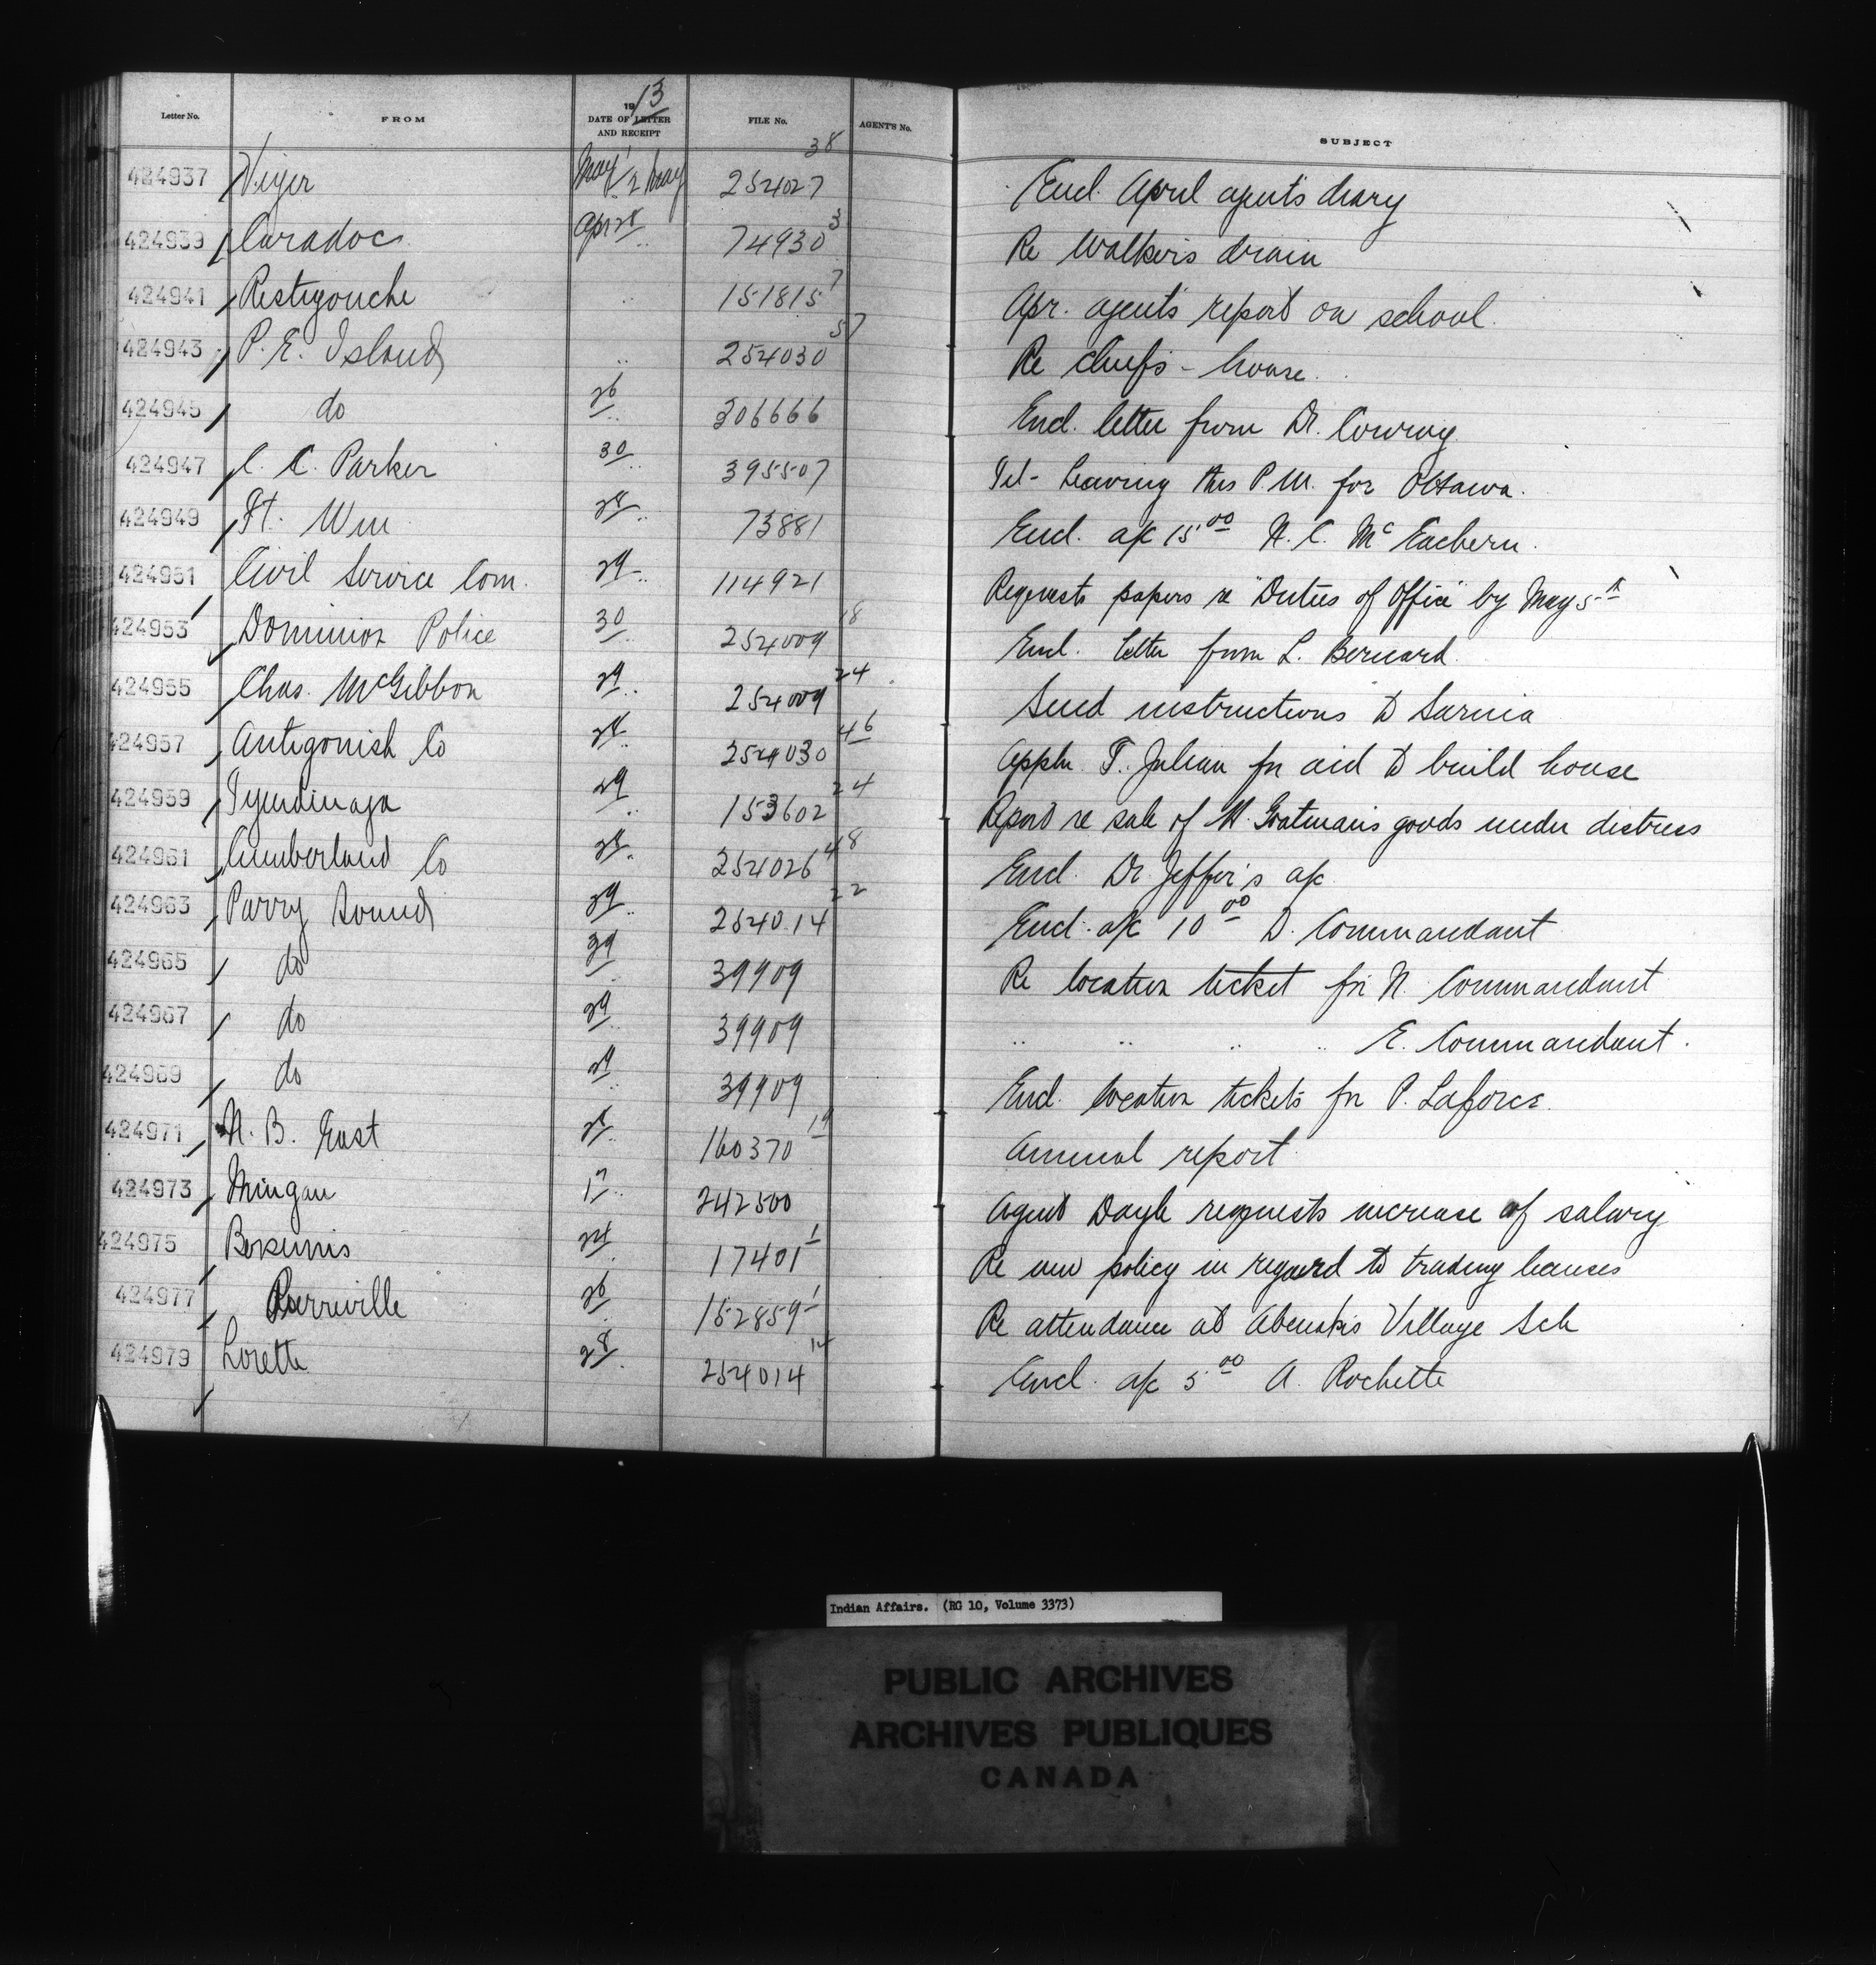 Letter No. FROM 1913 DATE OF LETTER AND RECEIPT FILE No. AGENT'S No. SUBJECT
424937 Viger May 1 2 May 254027 38 Encl. April agent's diary
424939 Caradoc Apr 28 " 74930 3 Re Walker's drain
424941 Restigouche " 151815 7 Apr. agent's report on school.
424943 P. E. Island " 254030 57 Re Chief's - house.
424945 do 26 " 306666 Encl. letter from Dr. Conroy
424947 C. C. Parker 30 " 395507 Tel - Leaving this P.M. for Ottawa.
424949 Ft. Wm 28 " 73881 Encl. a/c 15.00 N. C. McEachern.
424951 Civil Service Com. 29 " 114921 Requests papers re "Duties of Office" by May 5th
424953 Dominion Police 30 " 254009 18 Encl. letter from L. Bernard.
424955 Chas. McGibbon 29 " 254009 24 Send instructions to Sarnia
424957 Antigonish Co 28 " 254030 46 Appln. T. Julian for aid to build house
424959 Tyendinaga 29 " 153602 24 Report re sale of M. Goatman's goods under distress
424961 Cumberland Co 28 " 254026 48 Encl. Dr. Jeffer's a/c
424963 Parry Sound 29 " 254014 22 Encl. a/c 10.00 D. Commandant
424965 do 29 " 39909 Re location ticket for N. Commandant
424967 do 29 " 39909 " " " " E. Commandant.
424969 do 29 " 39909 Encl. location tickets for P. Laforce.
424971 N. B. East 28 " 160370 19 Annual report
424973 Mingan 17 " 242500 Agent Doyle requests increase of salary
424975 Bersimis 24 " 17401 1 Re new policy in regard to trading licenses
424977 Pierreville 26 " 152859 1 Re attendance at Abenakis Village Sch
424979 Lorette 28 " 254014 14 Encl. a/c 5.00 A. Rochette
Indian Affairs. (RG 10, Volume 3373)
PUBLIC ARCHIVES
ARCHIVES PUBLIQUES
CANADA